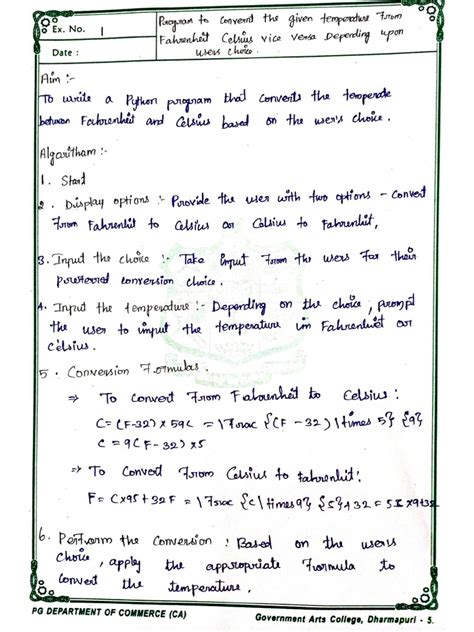 Ex. No. 1
Date :
Program to Convernt the given temperature From
Fahrenheit Celsius vice versa Depending upon
users choice.
Aim :-
To write a Python program that converts the temperate
between Fachrenheit and Celsius based on the user's choice.
Algaritham :-
1. Start
2. Display options :- Provide the user with two options - Convert
From Fahrenheit to Celsius or Celsius to Fahrenheit,
3. Input the choice :- Take input From the users For their
preferred conversion choice.
4. Input the temperature :- Depending on the choice, prompt
the user to input the temperature in Fahrenheit or
Celsius.
5. Conversion Formulas.
⇒ To Convert From Fahrenheit to Celsius :
C=(F-32) x 59C = \frac {(F - 32) \times 5} {9}
C = 9(F - 32) x5
⇒ To Convert From Celsius to Fahrenheit:
F= Cx95+32F = \frac {C \times 9} {5}+32 =
6. Perform the Conversion : Based on the users
Choice, apply the appropriate Formula to
Convert the temperature.
PG DEPARTMENT OF COMMERCE (CA)
Government Arts College, Dharmapuri - 5.